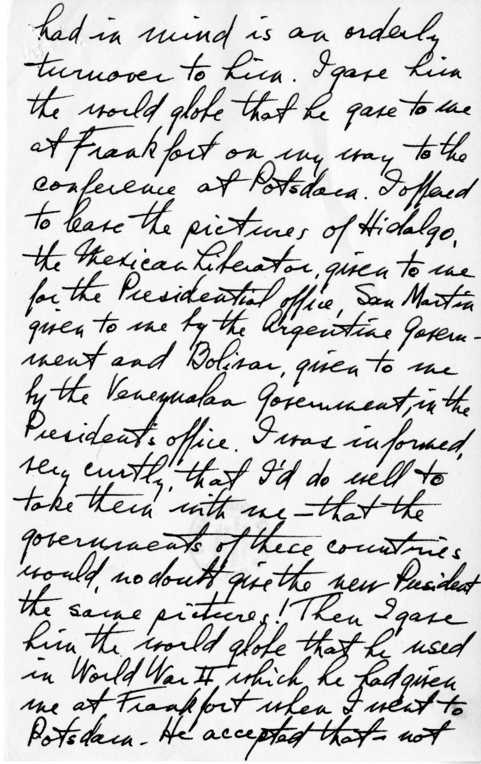 had in mind is an orderly
turnover to him. I gave him
the world globe that he gave to me
at Frankfort on my way to the
conference at Potsdam. I offered
to leave the pictures of Hidalgo,
the Mexican Liberator, given to me
for the Presidential office, San Martin
given to me by the Argentine Govern-
ment and Bolivar, given to me
by the Venezualan Government, in the
President's office. I was informed,
very curtly, that I'd do well to
take them with me - that the
governments of these countries
would, no doubt give the new President
the same pictures! Then I gave
him the world globe that he used
in World War II which he had given
me at Frankfort when I went to
Potsdam. He accepted that - not